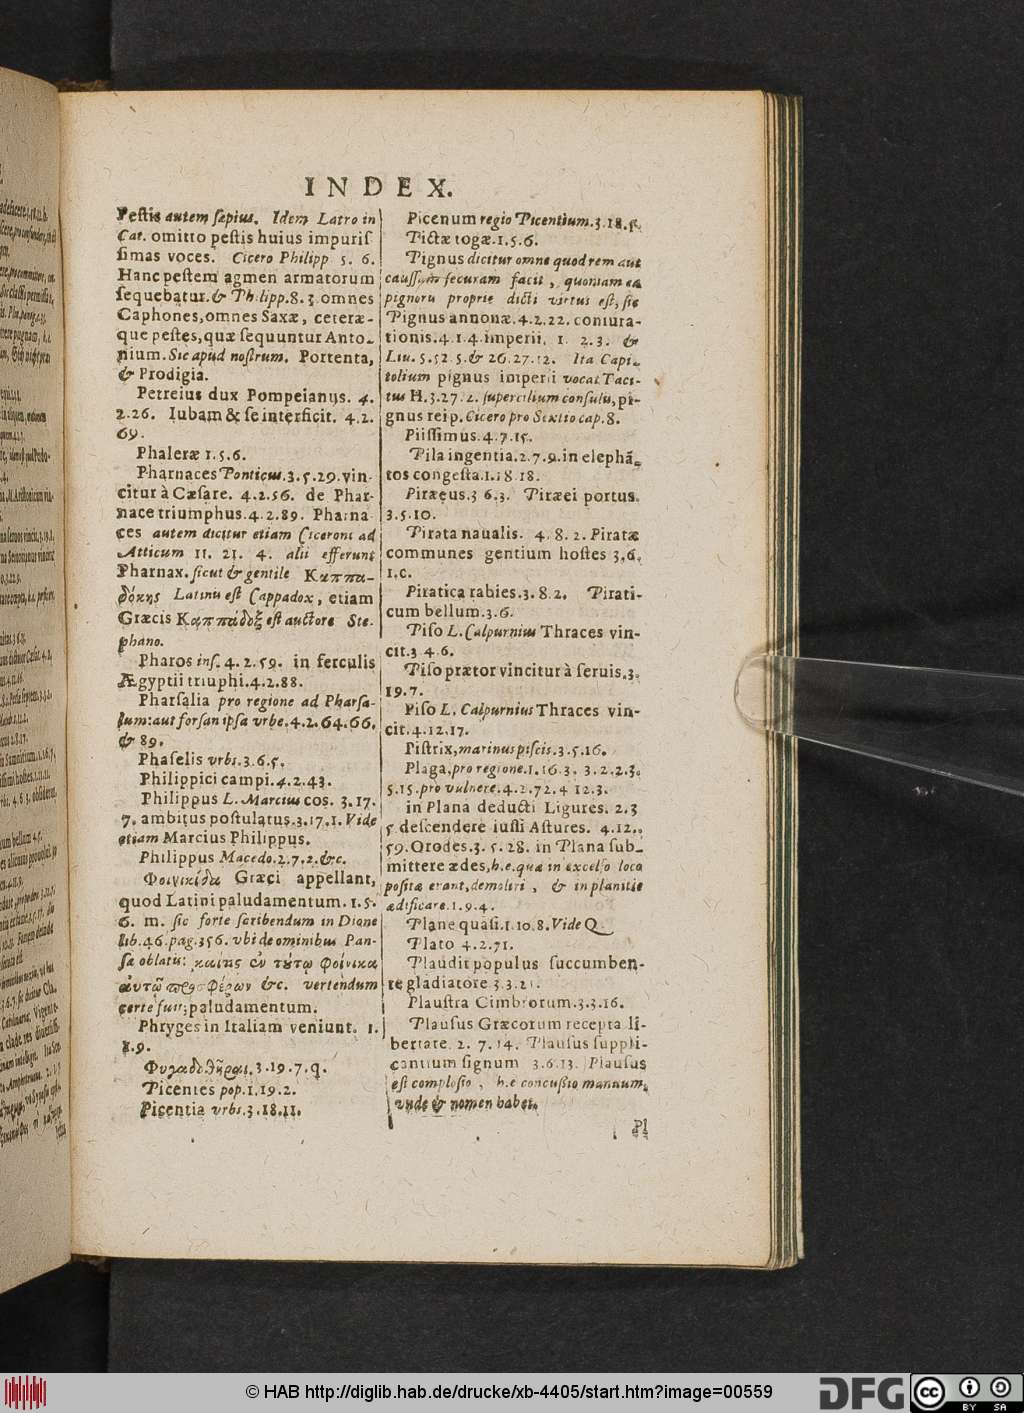 INDEX.
Pestis autem sæpius. Idem Latro in
Cat. omitto pestis huius impuris
simas voces. Cicero Philipp 5. 6.
Hanc pestem agmen armatorum
sequebatur. & Philipp. 8. 3. omnes
Caphones, omnes Saxæ, ceteræ-
que pestes, quæ sequuntur Anto-
nium. Sic apud nostrum. Portenta,
& Prodigia.
Petreius dux Pompeianus. 4.
2. 26. Iubam & se interficit. 4. 2.
69.
Phaleræ 1. 5. 6.
Pharnaces Ponticus. 3. 5. 29. vin-
citur à Cæsare. 4. 2. 56. de Phar-
nace triumphus. 4. 2. 89. Pharna-
ces autem dicitur etiam Ciceroni ad
Atticum 11. 21. 4. alii efferunt
Pharnax. sicut & gentile Καππα-
δόκης Latinis est Cappadox, etiam
Græcis Καππάδοξ est auctore Ste-
phano.
Pharos ins. 4. 2. 59. in ferculis
Ægyptii triuphi. 4. 2. 88.
Pharsalia pro regione ad Pharsa-
lum: aut forsan ipsa vrbe. 4. 2. 64. 66.
& 89.
Phaselis vrbs. 3. 6. 5.
Philippici campi. 4. 2. 43.
Philippus L. Marcius cos. 3. 17.
7. ambitus postulatus. 3. 17. 1. Vide
etiam Marcius Philippus.
Philippus Macedo. 2. 7. 2. &c.
Φοινικίδα Græci appellant,
quod Latini paludamentum. 1. 5.
6. m. sic forte scribendum in Dione
lib. 46. pag. 356. vbi de ominibus Pan-
sæ oblatis: καίτις ἐν τέτῳ Φοίνικα
αυτῷ προσφέρων &c. vertendum
certe fuit; paludamentum.
Phryges in Italiam veniunt. 1.
1. 9.
3. 19. 7. q.
Picentes pop. 1. 19. 2.
Picentia vrbs. 3. 18. 11.
Picenum regio Picentium. 3. 18. 5.
Pictæ togæ. 1. 5. 6.
Pignus dicitur omne quod rem aut
caussam securam facit, quoniam ea
pignora proprie dicti virtus est, sic
Pignus annonæ. 4. 2. 22. coniura-
tionis. 4. 1. 4. imperii. 1. 2. 3. &
Liu. 5. 52. 5. & 26. 27. 12. Ita Capi-
tolium pignus imperii vocat Taci-
tus H. 3. 27. 2. supercilium consulis, pi-
gnus reip. Cicero pro Sextio cap. 8.
Piissimus. 4. 7. 15.
Pila ingentia. 2. 7. 9. in elephã-
tos congesta. 1. 18. 18.
Piræeus. 3 6. 3. Piræei portus.
3. 5. 10.
Pirata naualis. 4. 8. 2. Piratæ
communes gentium hostes 3. 6.
1. c.
Piratica rabies. 3. 8. 2. Pirati-
cum bellum. 3. 6.
Piso L. Calpurnius Thraces vin-
cit. 3 4. 6.
Piso prætor vincitur à seruis. 3.
19. 7.
Piso L. Calpurnius Thraces vin-
cit. 4. 12. 17.
Pistrix, marinus piscis. 3. 5. 16.
Plaga, pro regione. 1. 16. 3. 3. 2. 2. 3.
5. 15. pro vulnere. 4. 2. 72. 4 12. 3.
in Plana deducti Ligures. 2. 3
5 descendere iussi Astures. 4. 12.
59. Orodes. 3. 5. 28. in Plana sub-
mittere ædes, h.e. quæ in excelso loco
positæ erant, demoliri, & in planitie
ædificare. 1. 9. 4.
Plane quasi. 1. 10. 8. Vide Q
Plato 4. 2. 71.
Plaudit populus succumben-
te gladiatore 3. 3. 21.
Plaustra Cimbrorum. 3. 3. 16.
Plausus Græcorum recepta li-
bertate. 2. 7. 14. Plausus suppli-
cantium signum 3. 6. 13. Plausus
est complosio, h.e concussio manuum,
vnde & nomen habet.
Pl
© HAB http://diglib.hab.de/drucke/xb-4405/start.htm?image=00559
DFG
cc
BY SA